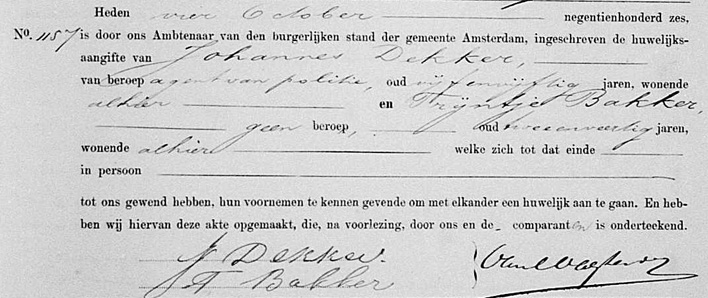 Heden vier October negentienhonderd zes,
No. 1157 is door ons Ambtenaar van den burgerlijken stand der gemeente Amsterdam, ingeschreven de huwelijks-
aangifte van Johannes Dekker,
van beroep agent van politie, oud vijfenvijftig jaren, wonende
alhier en Trijntje Bakker,
geen beroep, oud tweeenveertig jaren,
wonende alhier welke zich tot dat einde
in persoon
tot ons gewend hebben, hun voornemen te kennen gevende om met elkander een huwelijk aan te gaan. En heb-
ben wij hiervan deze akte opgemaakt, die, na voorlezing, door ons en de comparanten is onderteekend.
J Dekker.
T Bakker